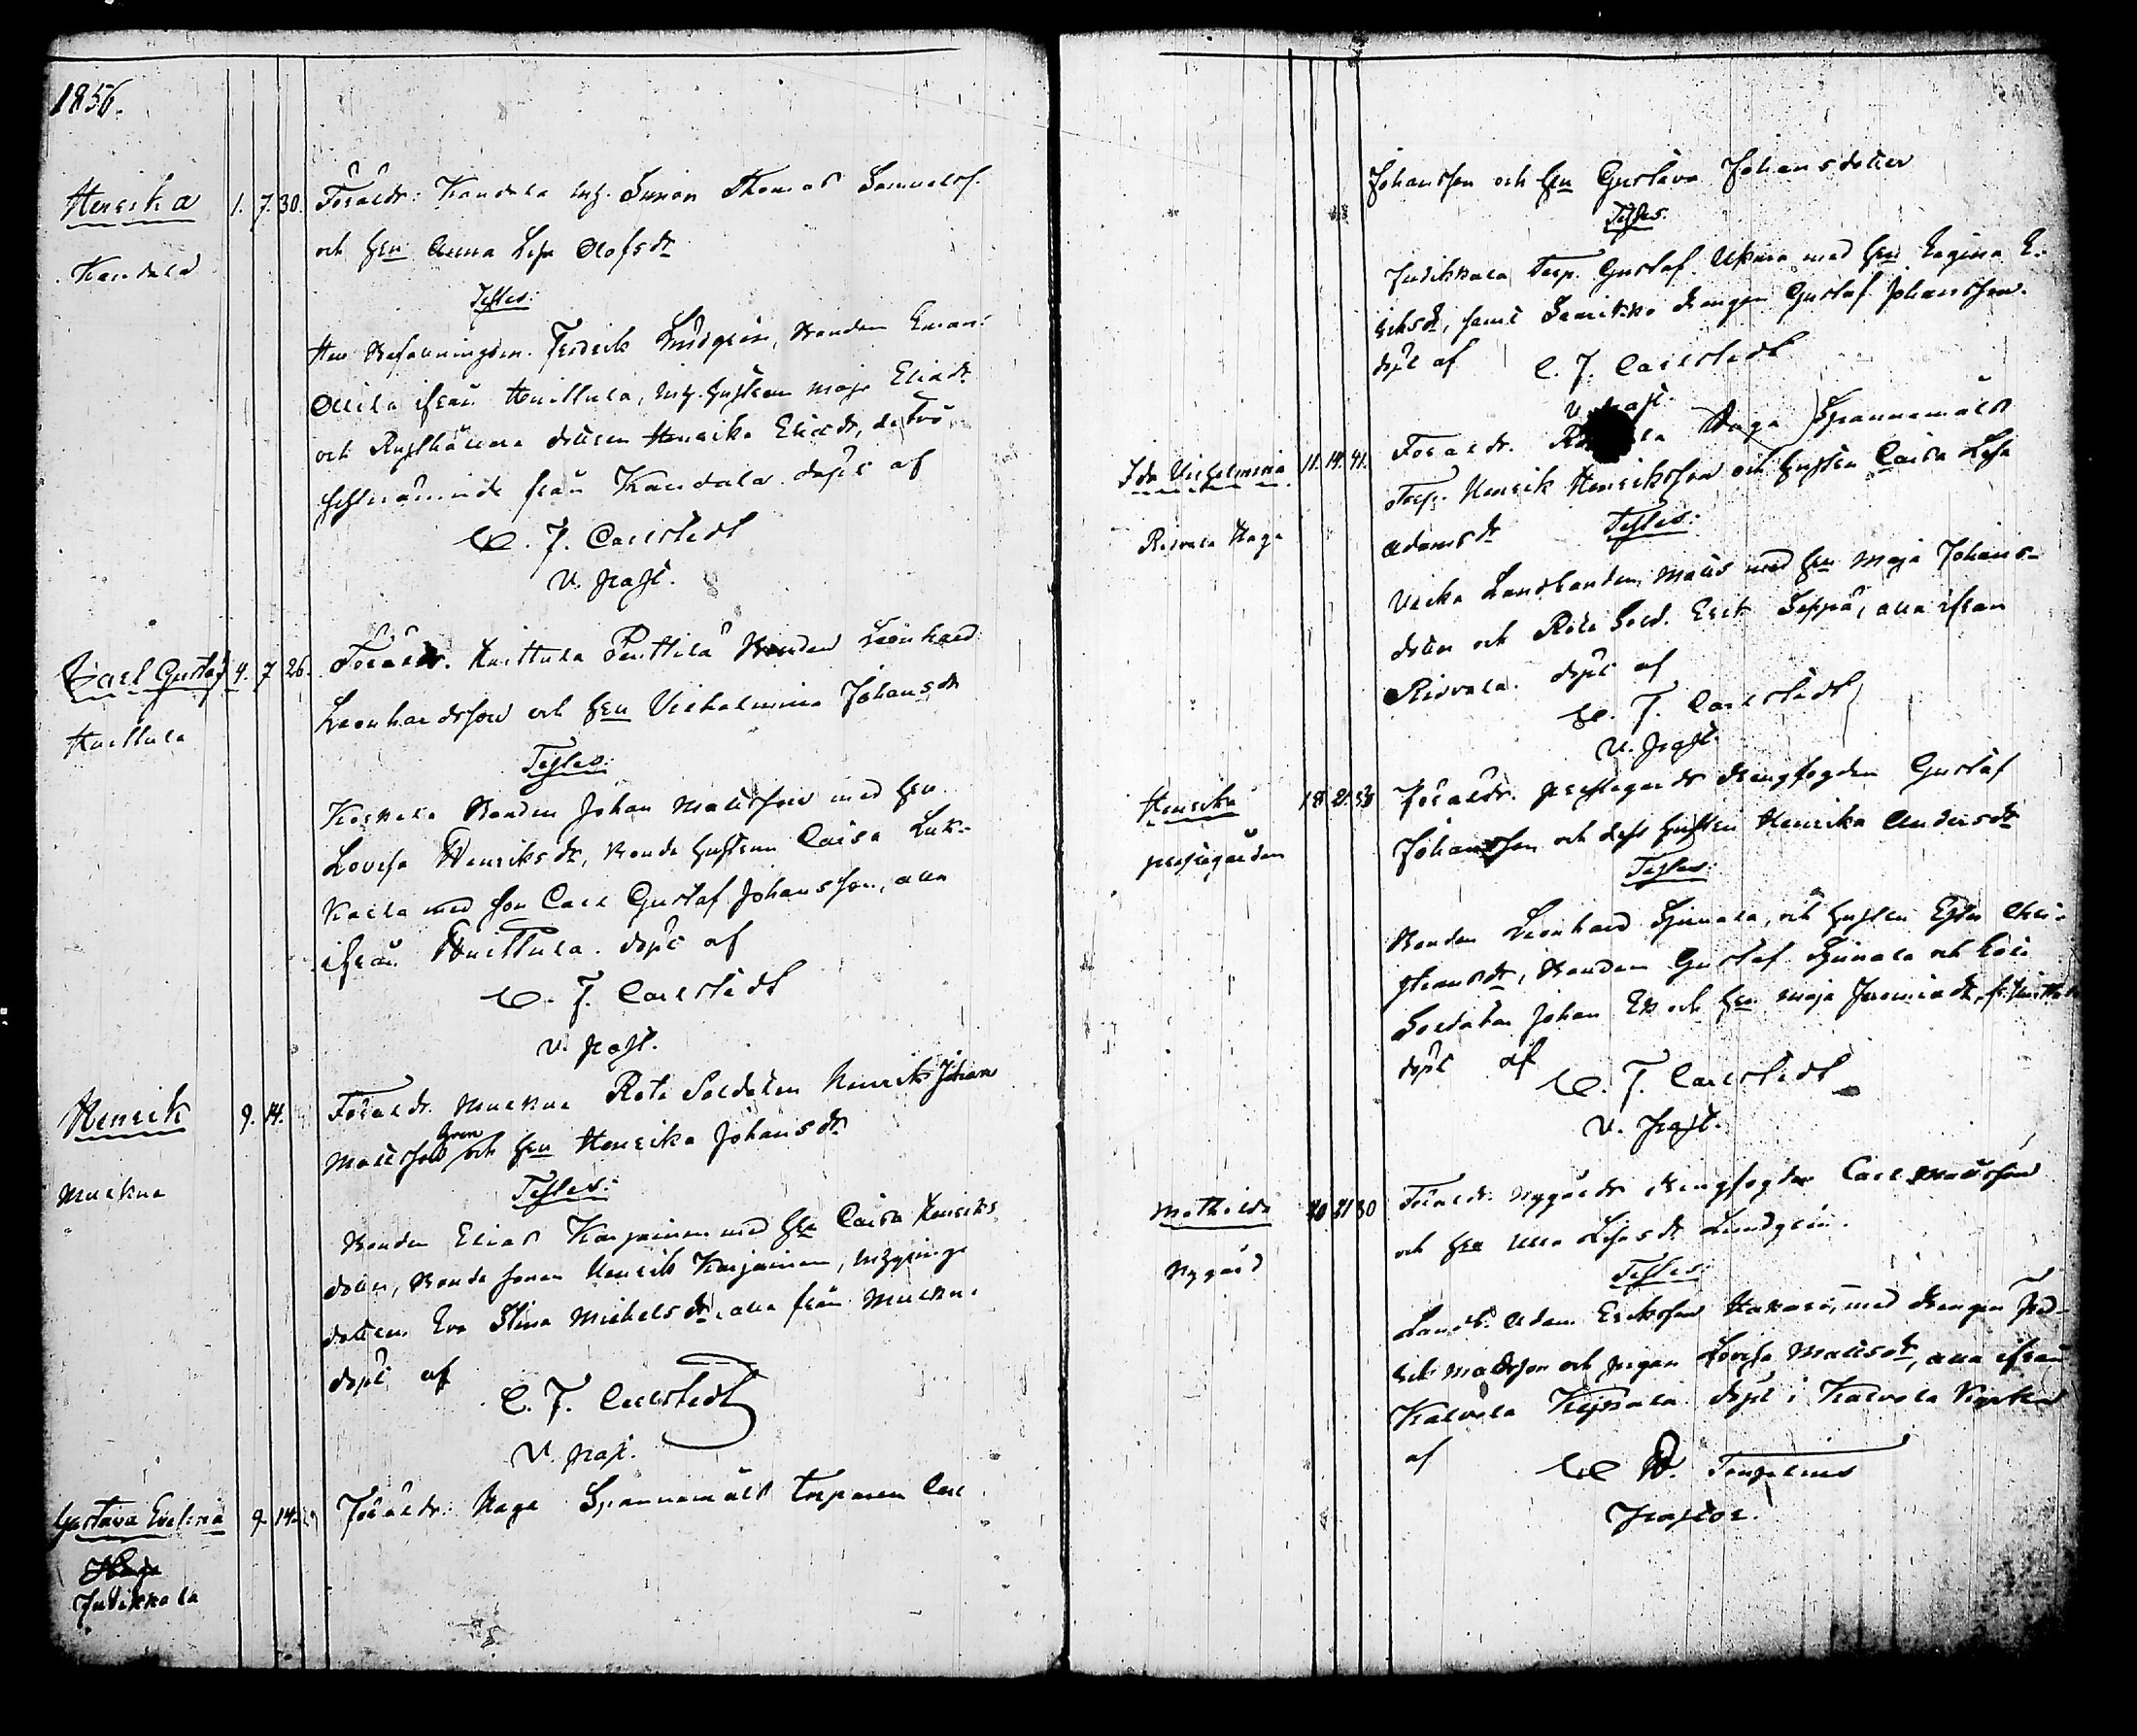 1856.
Henrika 1. 7. 30. Föräldr: Kandala Inh. Simon Thomas Samuelss.
och hu Anna Lisa Olofsdr
Kandala
Testes:
Herr Befallningsm. Fredrik Lindgrén, Bonden Eman:
Ollila ifrån Huittula, Inh. hustrun Maja Eliædr
och Rusthållare dottren Henrika Eliædr, de två
sistnämnde från Kandala. döpt af
C. F. Carlstedt
V. past.
Carl Gustaf 4. 7 26. Föräldr. Huittula Penttilä Bonden Leonhard
Leonhardsson och hu Vilhelmina Johansdr
Huittula
Testes:
Koskela Bonden Johan Mattsson med hu
Lovisa Henriksdr, Bonde hustrun Caisa Luk-
Kaila med son Carl Gustaf Johansson, alla
ifrån Huittula. döpt af
C. F. Carlstedt
v. past.
Henrik 9. 14. Föräldr. Mälkiä Rote Soldaten Henrik Johan
Mattsson Gren och hu Henrika Johansdr
Testes:
Bonden Elias Karjainen med hu Caisa Henriks
dotter, Bonde sonen Henrik Karjainen,
dottren Eva Stina Michelsdr, alla från
döpt af
C. F. Carlstedt
V. past.
Gustava Evelina 9. 14. Föräldr: Haga Spannemåls torparen Carl
Judikkala
Johansson och hu Gustava Johansdotter
Testes:
Judikkala Torp. Gustaf med hu Regina E-
riksdr, samt drengen Gustaf Johansson.
döpt af C. F. Carlstedt
V. past.
Ida Vilhelmina 11. 14. 41. Föräldr. Haga Spannemåls
Torp. Henrik Henriksson och hustrun Caisa Lisa
Adamsdr
Ridvala Haga
Testes:
Landbonden Matts med hu Maja Johans-
dotter och Rote Sold. Erik Seppä, alla ifrån
Ridvala. döpt af
C. F. Carlstedt
v. past.
Henrika 18. 21. Föräldr. prestegårds drengfogden Gustaf
Johansson och dess hustru Henrika Andersdr
prestegården
Testes:
Bonden Leonhard och hustru Ester Chri-
stiansdr, Bonden Gustaf och
Soldaten Johan Ek och hu Maja Jeremiædr, fr. Huittula
döpt af
C. F. Carlstedt
V. past.
Mathilda 20 21 30 Föräldr. Nygårds drengfogden Carl Mattsson
och hu Ulla Lisa Lindgrén.
Nygård
Testes:
Landb. Adam Eriksson med drengen Fred-
rik Mattsson och pigan Lovisa Mattsdr, alla ifrån
Kalvola döpt i Kalvola Kyrka
af
Pastor.